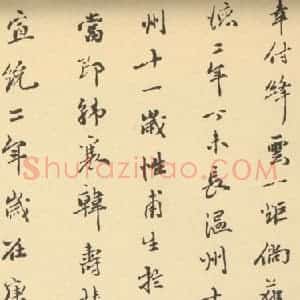 付絳雲一炬倘
二年丁未長溫州十
州十一歲性甫生於
當即韓襄韓壽
宣統二年歲在庚
Shufaziliao.com